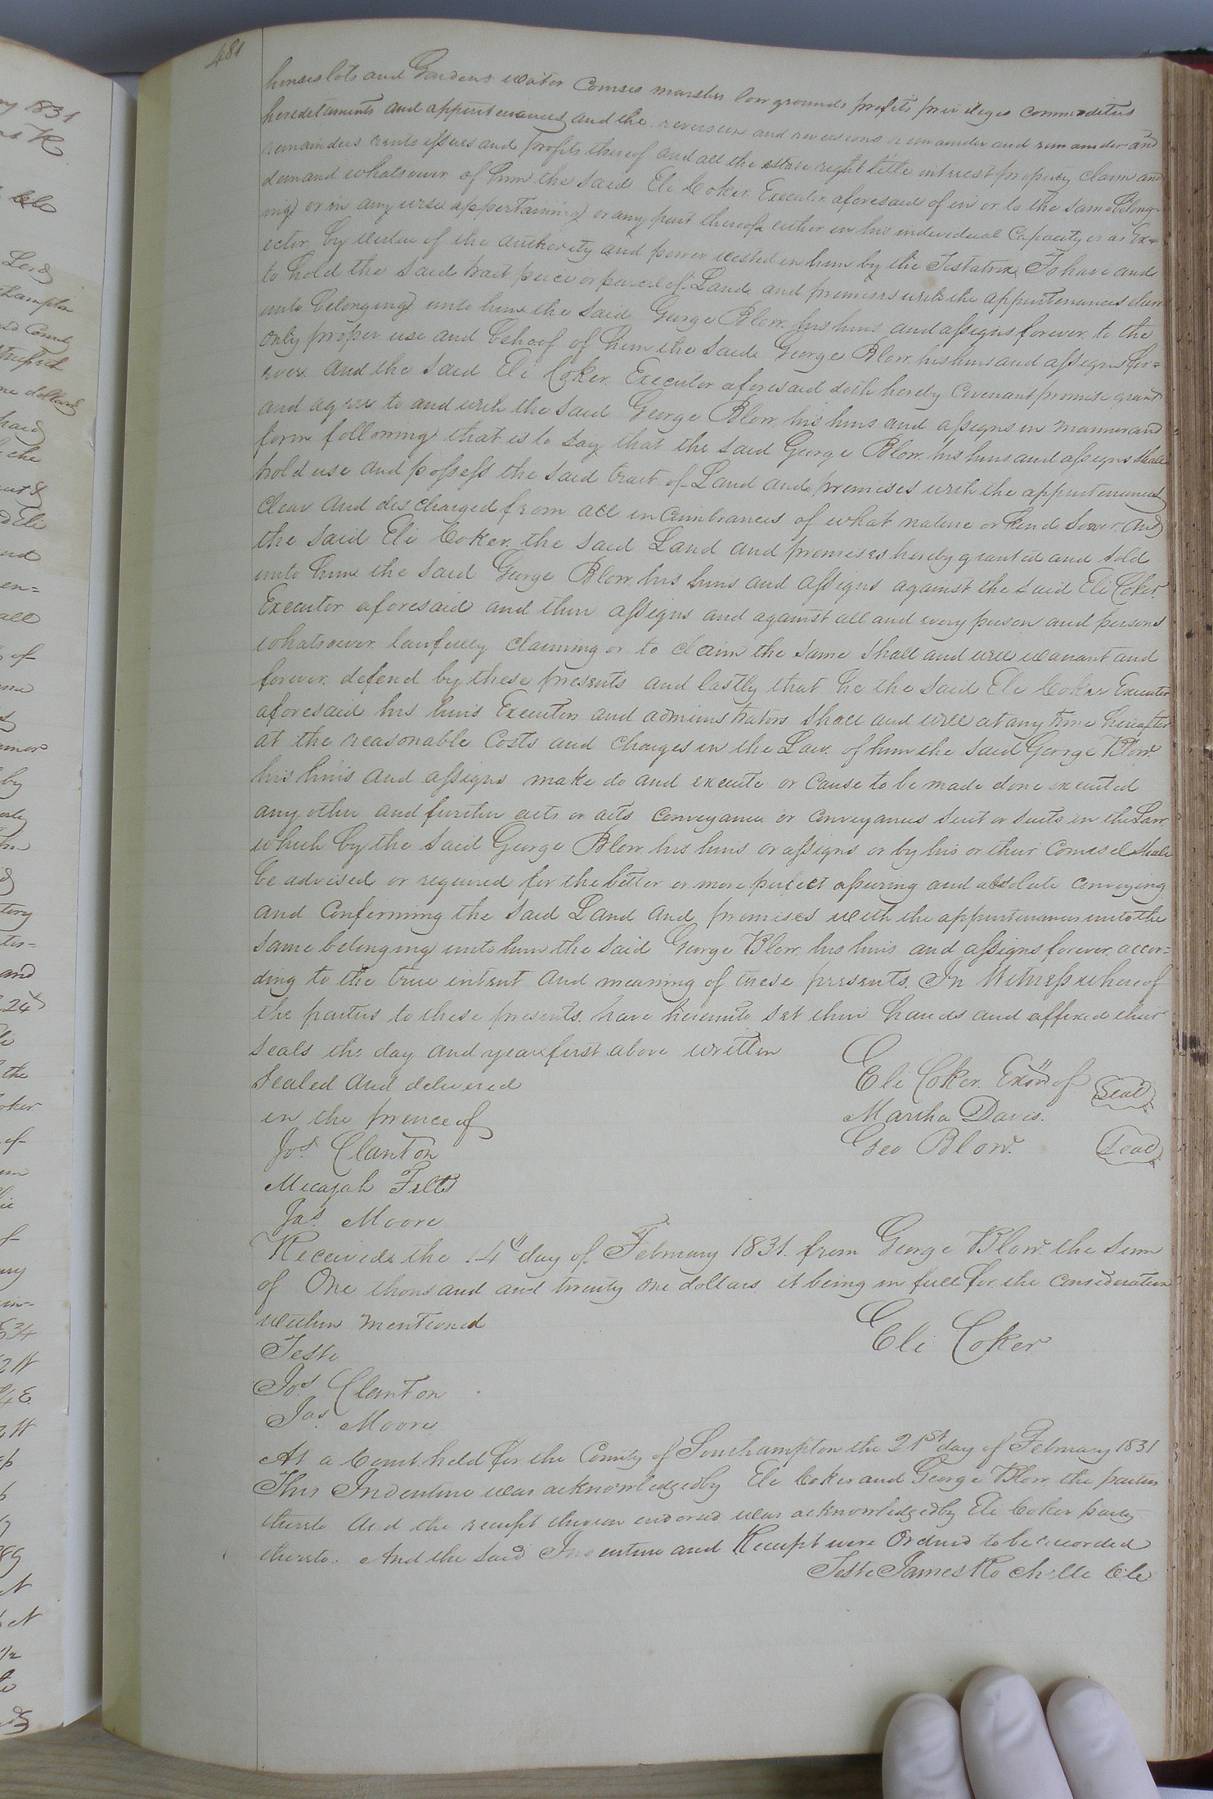 481
houses lots and Gardens water Courses marshes low grounds profits privileges commodities
hereditaments and appurtenances and the reversion and reversions remainder and remainder and
remainders rents issues and profits thereof and all the estate right title interest property claim and
demand whatsoever of him the said Eli Coker Executor aforesaid of in or to the same belong-
ing or in any wise appertaining or any part thereof either in his individual Capacity or as Exe-
cutor by virtue of the authority and power vested in him by the Testatrix To have and
to hold the said tract peice or parcel of Land and premises with the appurtenances there
unto belonging unto him the said George Blow his heirs and assigns forever to the
only proper use and behoof of him the said George Blow his heirs and assigns for-
ever And the said Eli Coker Executor aforesaid doth hereby Covenant promise grant
and agree to and with the said George Blow his heirs and assigns in manner and
form following that is to say that the said George Blow his heirs and assigns shall
hold use and possess the said tract of Land and premises with the appurtenances
clear and discharged from all incumbrances of what nature or kind soever And
the said Eli Coker the said Land and premises hereby granted and sold
unto him the said George Blow his heirs and assigns against the said Eli Coker
Executor aforesaid and their assigns and against all and every person and persons
whatsoever lawfully claiming or to claim the same shall and will warrant and
forever defend by these presents and lastly that he the said Eli Coker Executor
aforesaid his heirs Executors and administrators shall and will at any time hereafter
at the reasonable Costs and charges in the Law of him the said George Blow
his heirs and assigns make do and execute or cause to be made done executed
any other and further acts or acts conveyance or conveyances suit or suits in the Law
which by the said George Blow his heirs or assigns or by his or their Councel shall
be advised or required for the better or more perfect assuring and absolute conveying
and Confirming the said Land and premises with the appurtenances unto the
same belonging unto him the said George Blow his heirs and assigns forever accor-
ding to the true intent and meaning of these presents. In Witness whereof
the parties to these presents have hereunto set their hands and affixed their
seals the day and year first above written
Sealed and delivered
in the prence of
Jos. Clanton
Micajah Felts
Jas. Moore
Eli Coker Exor of Seal
Martha Davis.
Geo Blow. Seal
Received the 14th day of February 1831 from George Blow the sum
of One thousand and twenty one dollars it being in full for the consideration
within mentioned
Eli Coker
Teste
Jos Clanton
Jas. Moore
At a Court held for the County of Southampton the 21st day of February 1831
This Indenture was acknowledged by Eli Coker and George Blow the parties
thereto And the receipt thereon endorsed was acknowledged by Eli Coker party
thereto. And the said Indenture and Receipt were Ordered to be recorded
Teste James Rochelle Clk